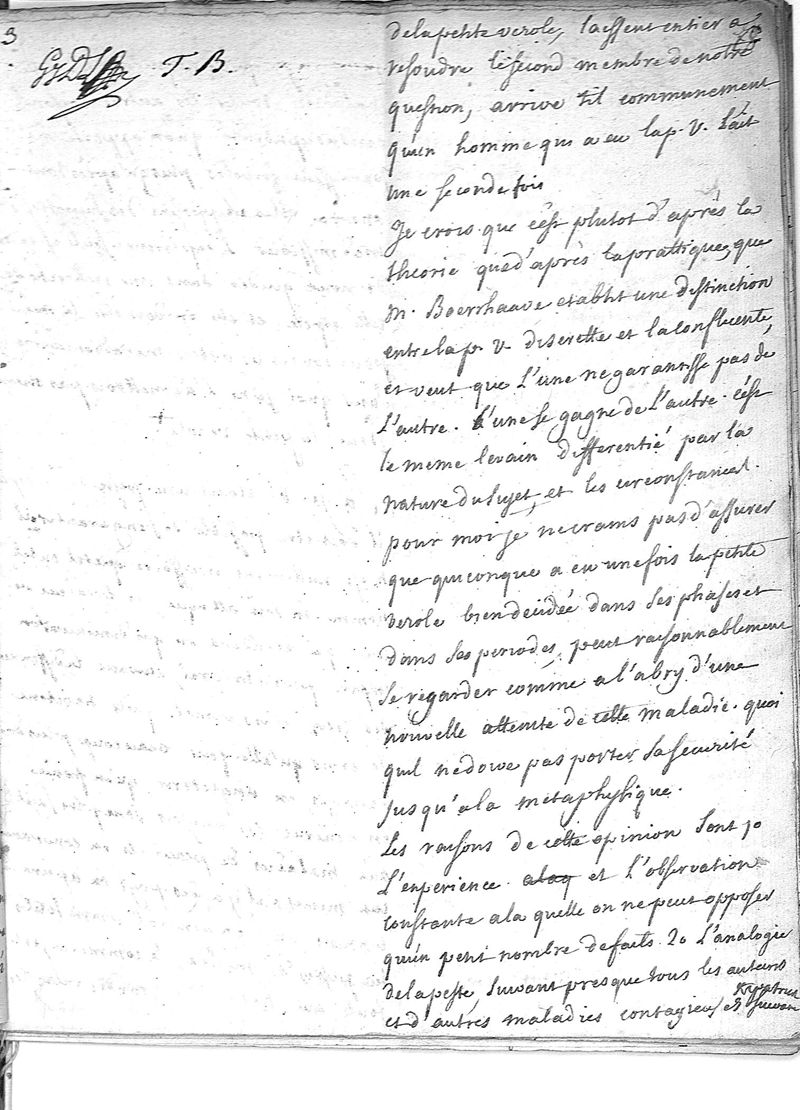 3
T. B.
de la petite verole, laissent entier a
resoudre le second membre de notre
question, arrive til communement
qu'un homme qui a eu la p. V. L'ait
une seconde fois
Je crois que c'est plutot d'après la
theorie que d'après la prattique, que
M. Boerrhaave etablit une distinction
entre la p. v. discrette et la confluente,
et veut que L'une ne garantisse pas de
L'autre. L'une se gagne de L'autre. c'est
le meme levain differentié par la
nature du sujet, et les circonstances.
pour moi je ne crains pas d'assurer
que quiconque a eu une fois la petite
verole bien decidée dans ses phases et
dans ses periodes, peut raisonnablement
se regarder comme a l'abry d'une
nouvelle atteinte de cette maladie. quoi
quil ne doive pas porter sa securité
jusqu'a la metaphysique.
Les raisons de cette opinion sont 1o
L'experience et L'observation
constante a la quelle on ne peut opposer
qu'un petit nombre de faits. 2o L'analogie
de la peste, suivant presque tous les auteurs
et d'autres maladies contagieuses